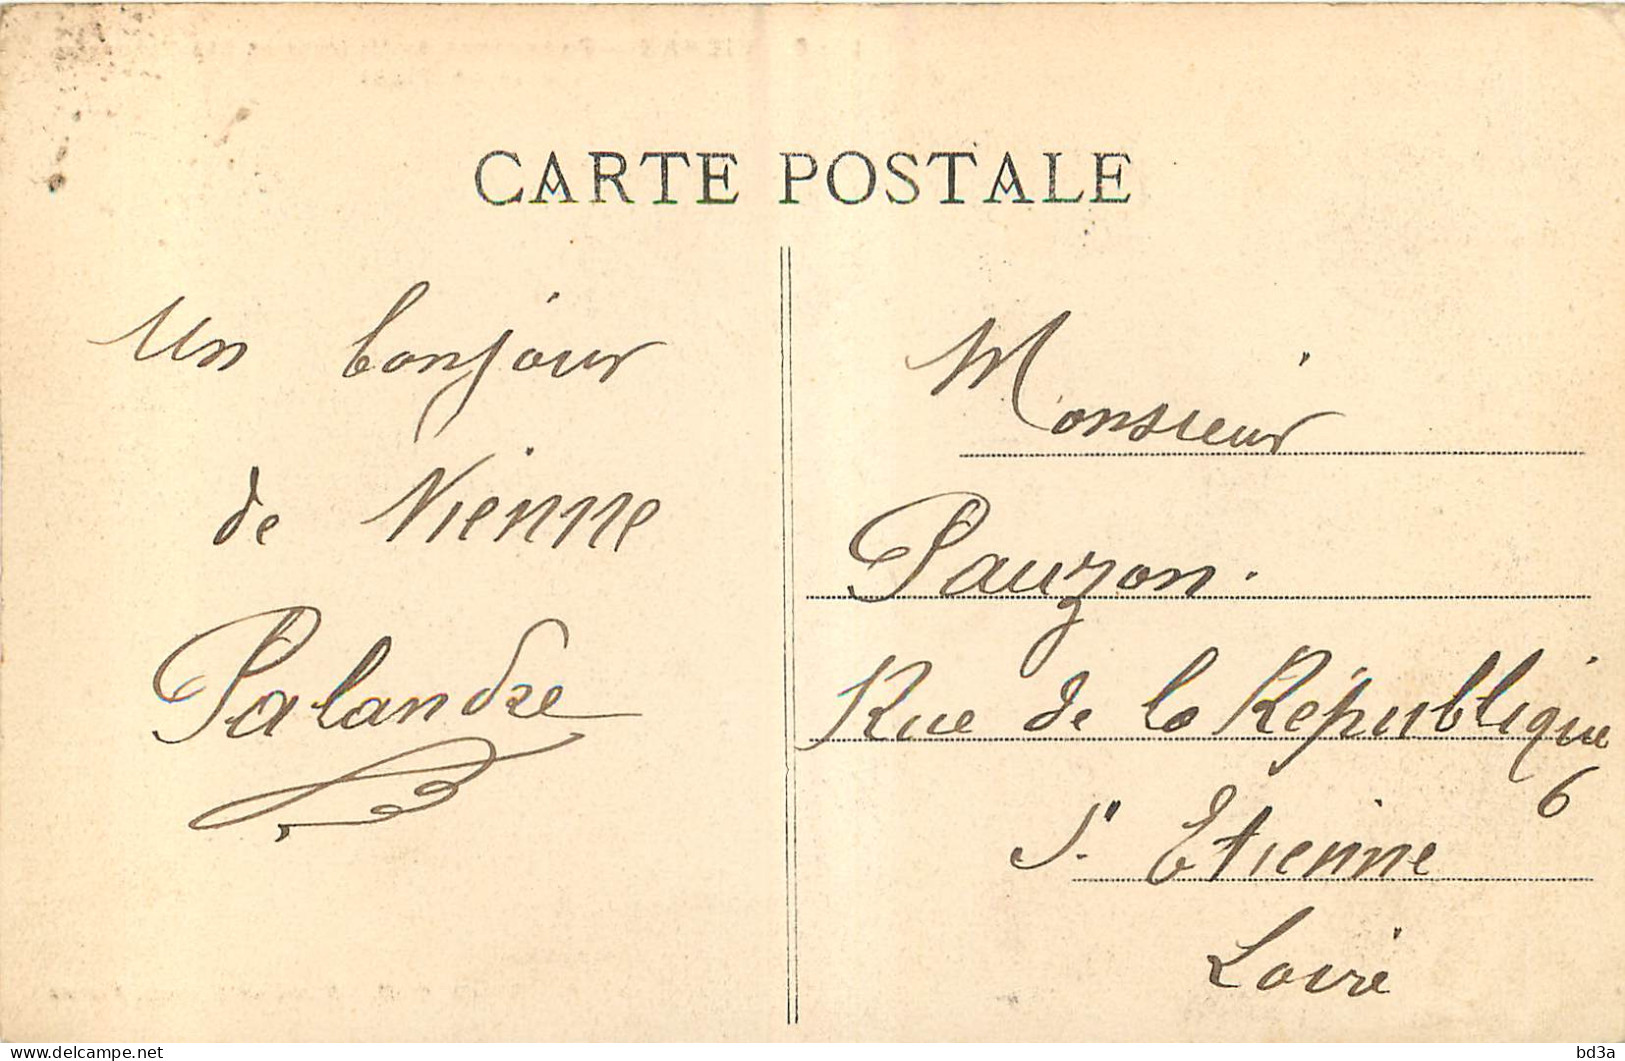 CARTE POSTALE
Un bonjour
de Vienne
Palandre
Monsieur
Pauzon.
Rue de la République
6
St Etienne
Loire
delcampe.net
bd3a